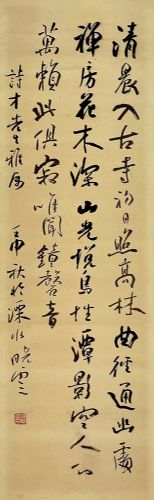 清晨入古寺初日照高林曲径通幽處
禅房花木深山光悦鳥性潭影空人心
萬籟此俱寂唯聞鐘磬音
詩才先生雅属
秋於溧水曉雲